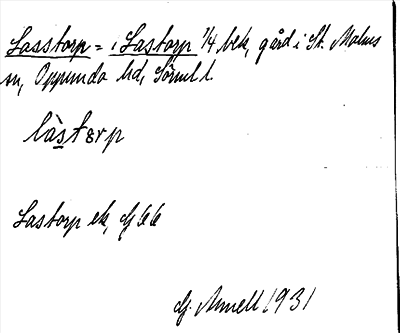 Lasstorp = , Lastorp 1/4 bek, gård i St. Malms
sn, Oppunda hd, Sörml l.
là̱stərp
Lastorp ek, G 66
G. Annell 1931